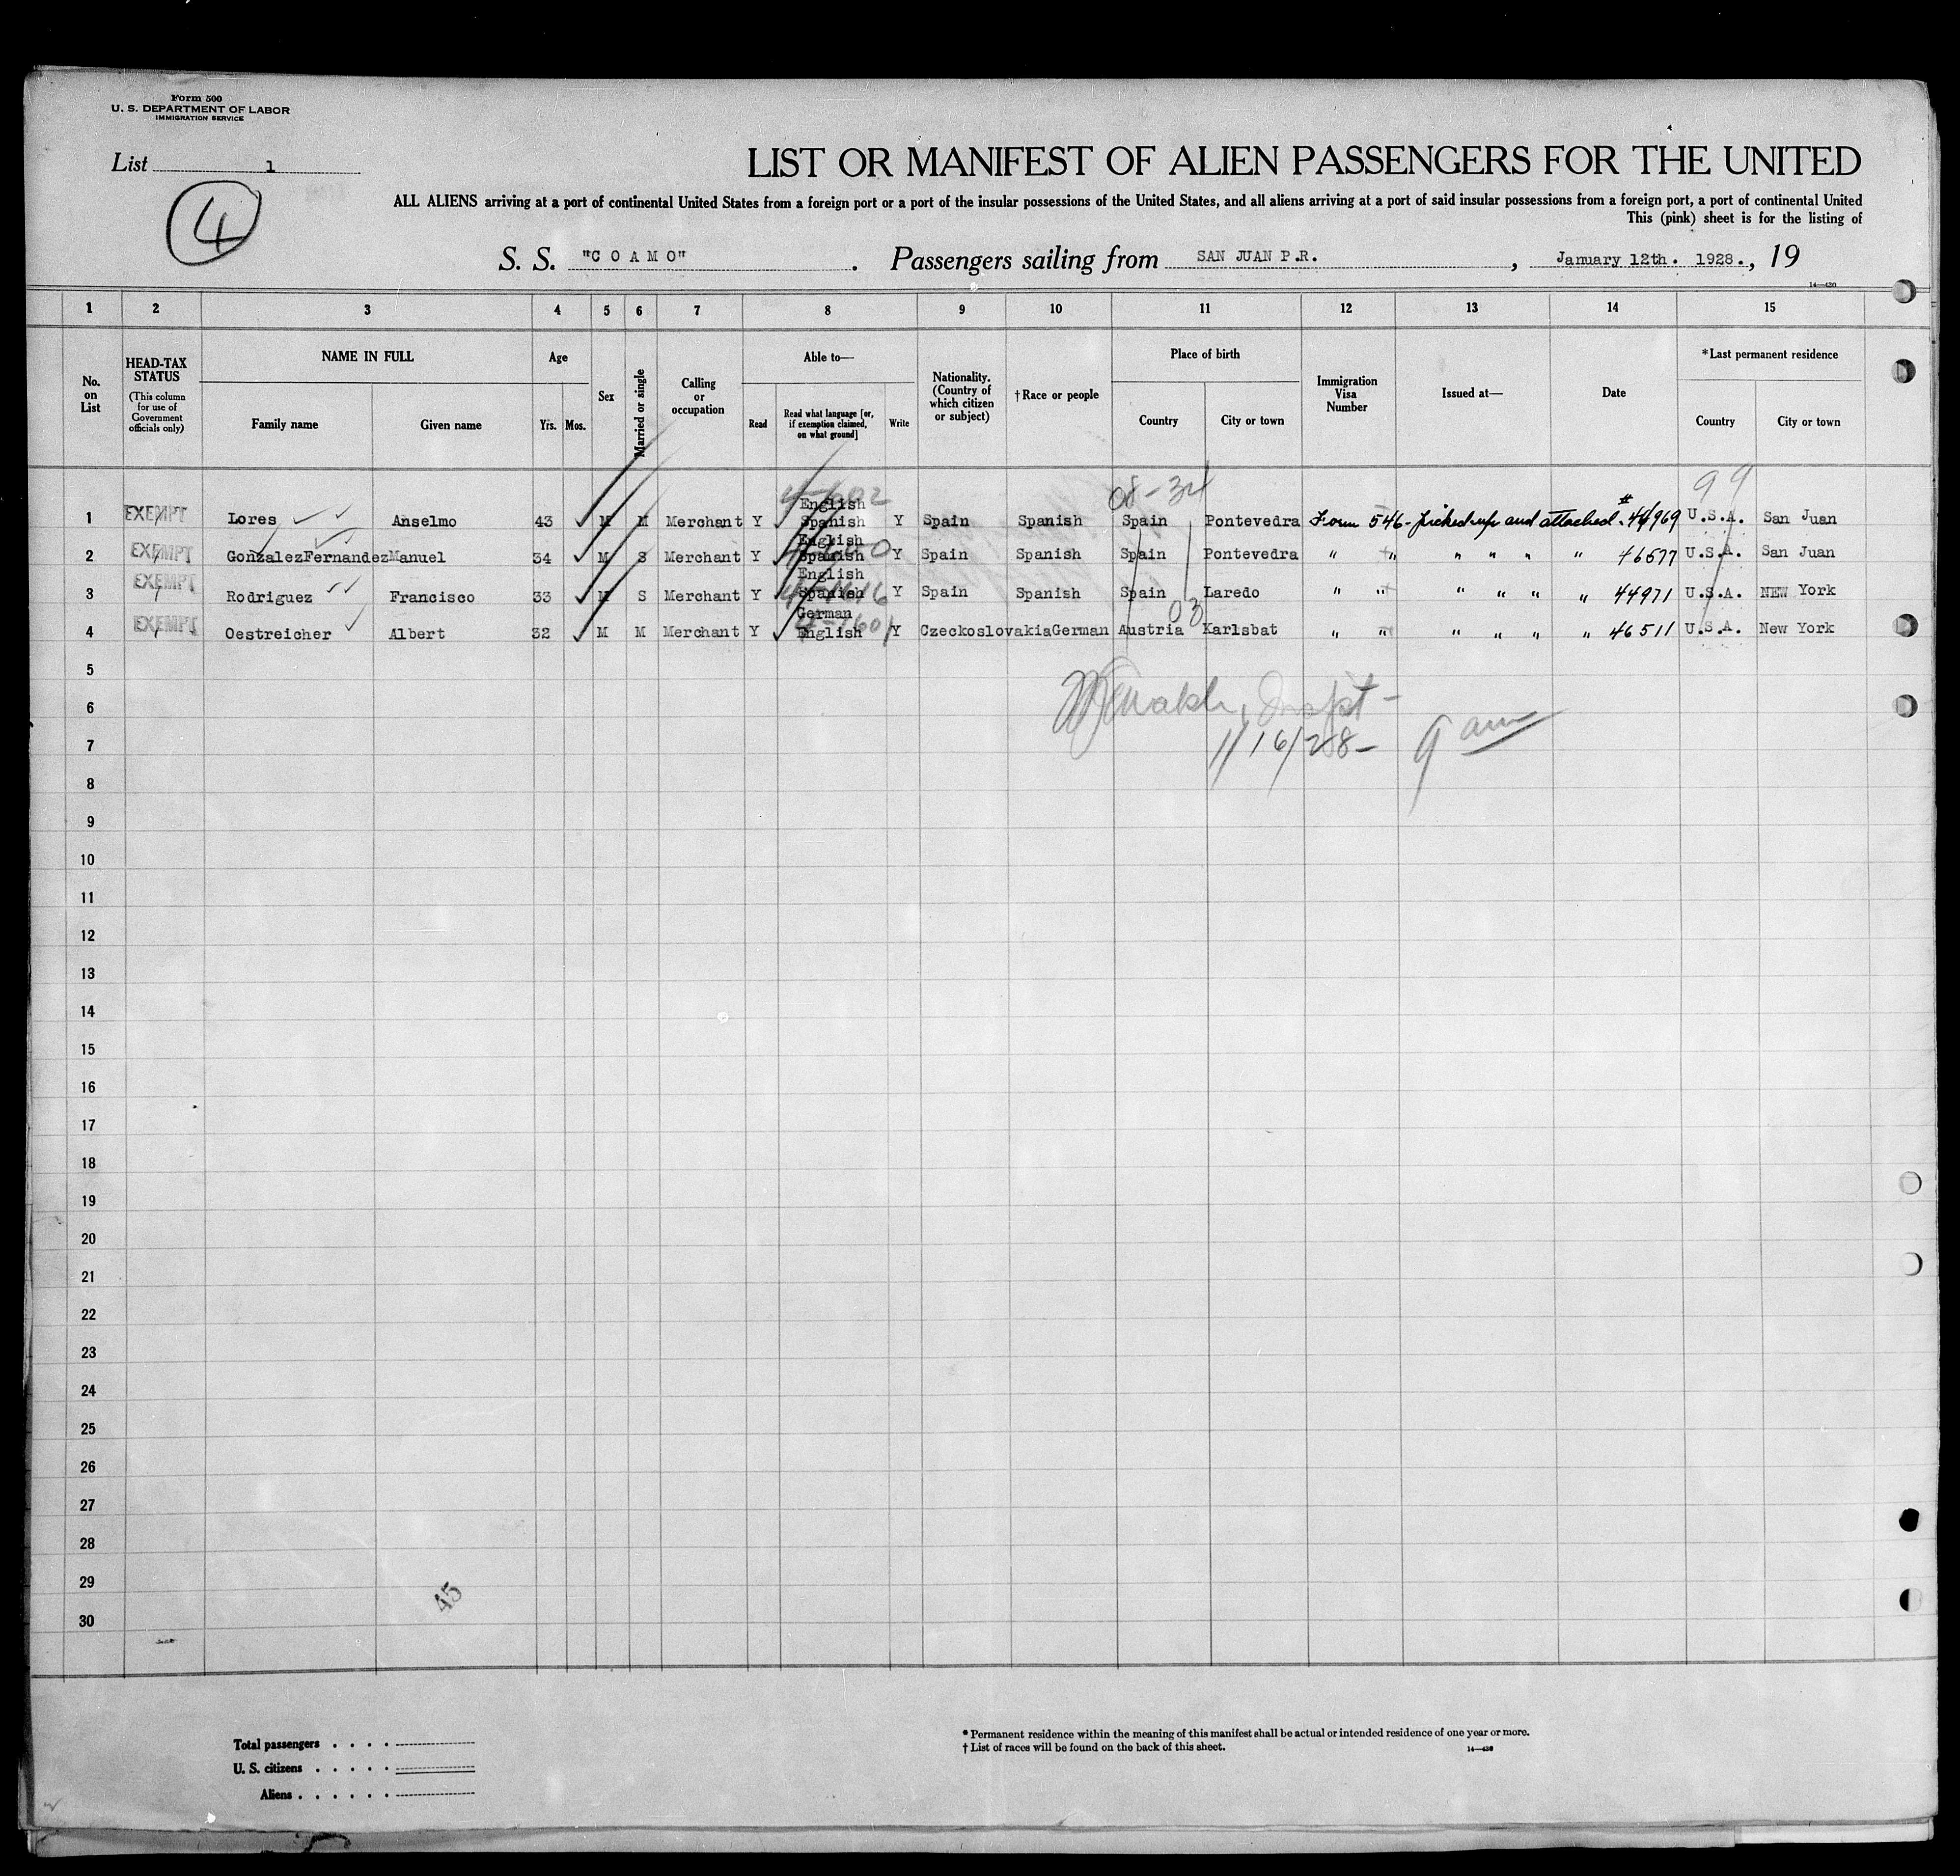 Form 500
U. S. DEPARTMENT OF LABOR
IMMIGRATION SERVICE
List 1
4
LIST OR MANIFEST OF ALIEN PASSENGERS FOR THE UNITED
ALL ALIENS arriving at a port of continental United States from a foreign port or a port of the insular possessions of the United States, and all aliens arriving at a port of said insular possessions from a foreign port, a port of continental United
This (pink) sheet is for the listing of
S. S. "C O A M O" . Passengers sailing from SAN JUAN P.R. , January 12th. 1928. , 19
14—430
1 2 3 4 5 6 7 8 9 10 11 12 13 14 15
No. on List
HEAD-TAX STATUS (This column for use of Government officials only)
NAME IN FULL
Family name Given name
Age
Yrs. Mos.
Sex
Married or single
Calling or occupation
Able to—
Read Read what language [or, if exemption claimed, on what ground] Write
Nationality. (Country of which citizen or subject)
†Race or people
Place of birth
Country City or town
Immigration Visa Number
Issued at—
Date
*Last permanent residence
Country City or town
08-34 99
1 EXEMPT Lores Anselmo 43 M M Merchant Y English Spanish Y Spain Spanish Spain Pontevedra Form 546 - picked up and attached. # 44969 U.S.A. San Juan
2 EXEMPT GonzalezFernandezManuel 34 M S Merchant Y English Spanish Y Spain Spanish Spain Pontevedra " " " " " " 46577 U.S.A. San Juan
3 EXEMPT Rodriguez Francisco 33 M S Merchant Y English Spanish Y Spain Spanish Spain Laredo " " " " " " 44971 U.S.A. NEW York
03
4 EXEMPT Oestreicher Albert 32 M M Merchant Y German English Y CzeckoslovakiaGerman Austria Karlsbat " " " " " " 46511 U.S.A. New York
5
6
7 1/16/28- 9 am
8
9
10
11
12
13
14
15
16
17
18
19
20
21
22
23
24
25
26
27
28
29
45
30
Total passengers
U. S. citizens
Aliens
* Permanent residence within the meaning of this manifest shall be actual or intended residence of one year or more.
† List of races will be found on the back of this sheet.
14—430